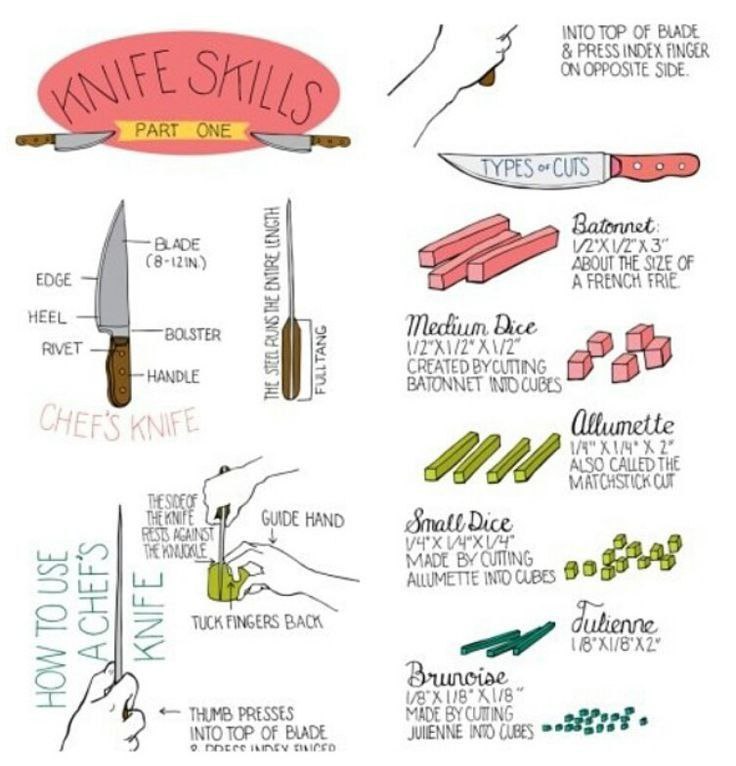 KNIFE SKILLS
PART ONE
BLADE
(8-12 IN.)
EDGE
HEEL
BOLSTER
RIVET
HANDLE
CHEF'S KNIFE
THE STEEL RUNS THE ENTIRE LENGTH
FULLTANG
HOW TO USE
A CHEF'S
KNIFE
THE SIDE OF
THE KNIFE
RESTS AGAINST
THE KNUCKLE
GUIDE HAND
TUCK FINGERS BACK
THUMB PRESSES
INTO TOP OF BLADE
& PRESS INDEX FINGER
INTO TOP OF BLADE
& PRESS INDEX FINGER
ON OPPOSITE SIDE.
TYPES OF CUTS
Batonnet:
1/2"X1/2"X3"
ABOUT THE SIZE OF
A FRENCH FRIE.
Medium Dice
1/2"X1/2"X1/2"
CREATED BY CUTTING
BATONNET INTO CUBES
Allumette
1/4"X1/4"X2"
ALSO CALLED THE
MATCHSTICK CUT
Small Dice
1/4"X1/4"X1/4"
MADE BY CUTTING
ALLUMETTE INTO CUBES
Julienne
1/8"X1/8"X2"
Brunoise
1/8"X1/8"X1/8"
MADE BY CUTTING
JULIENNE INTO CUBES